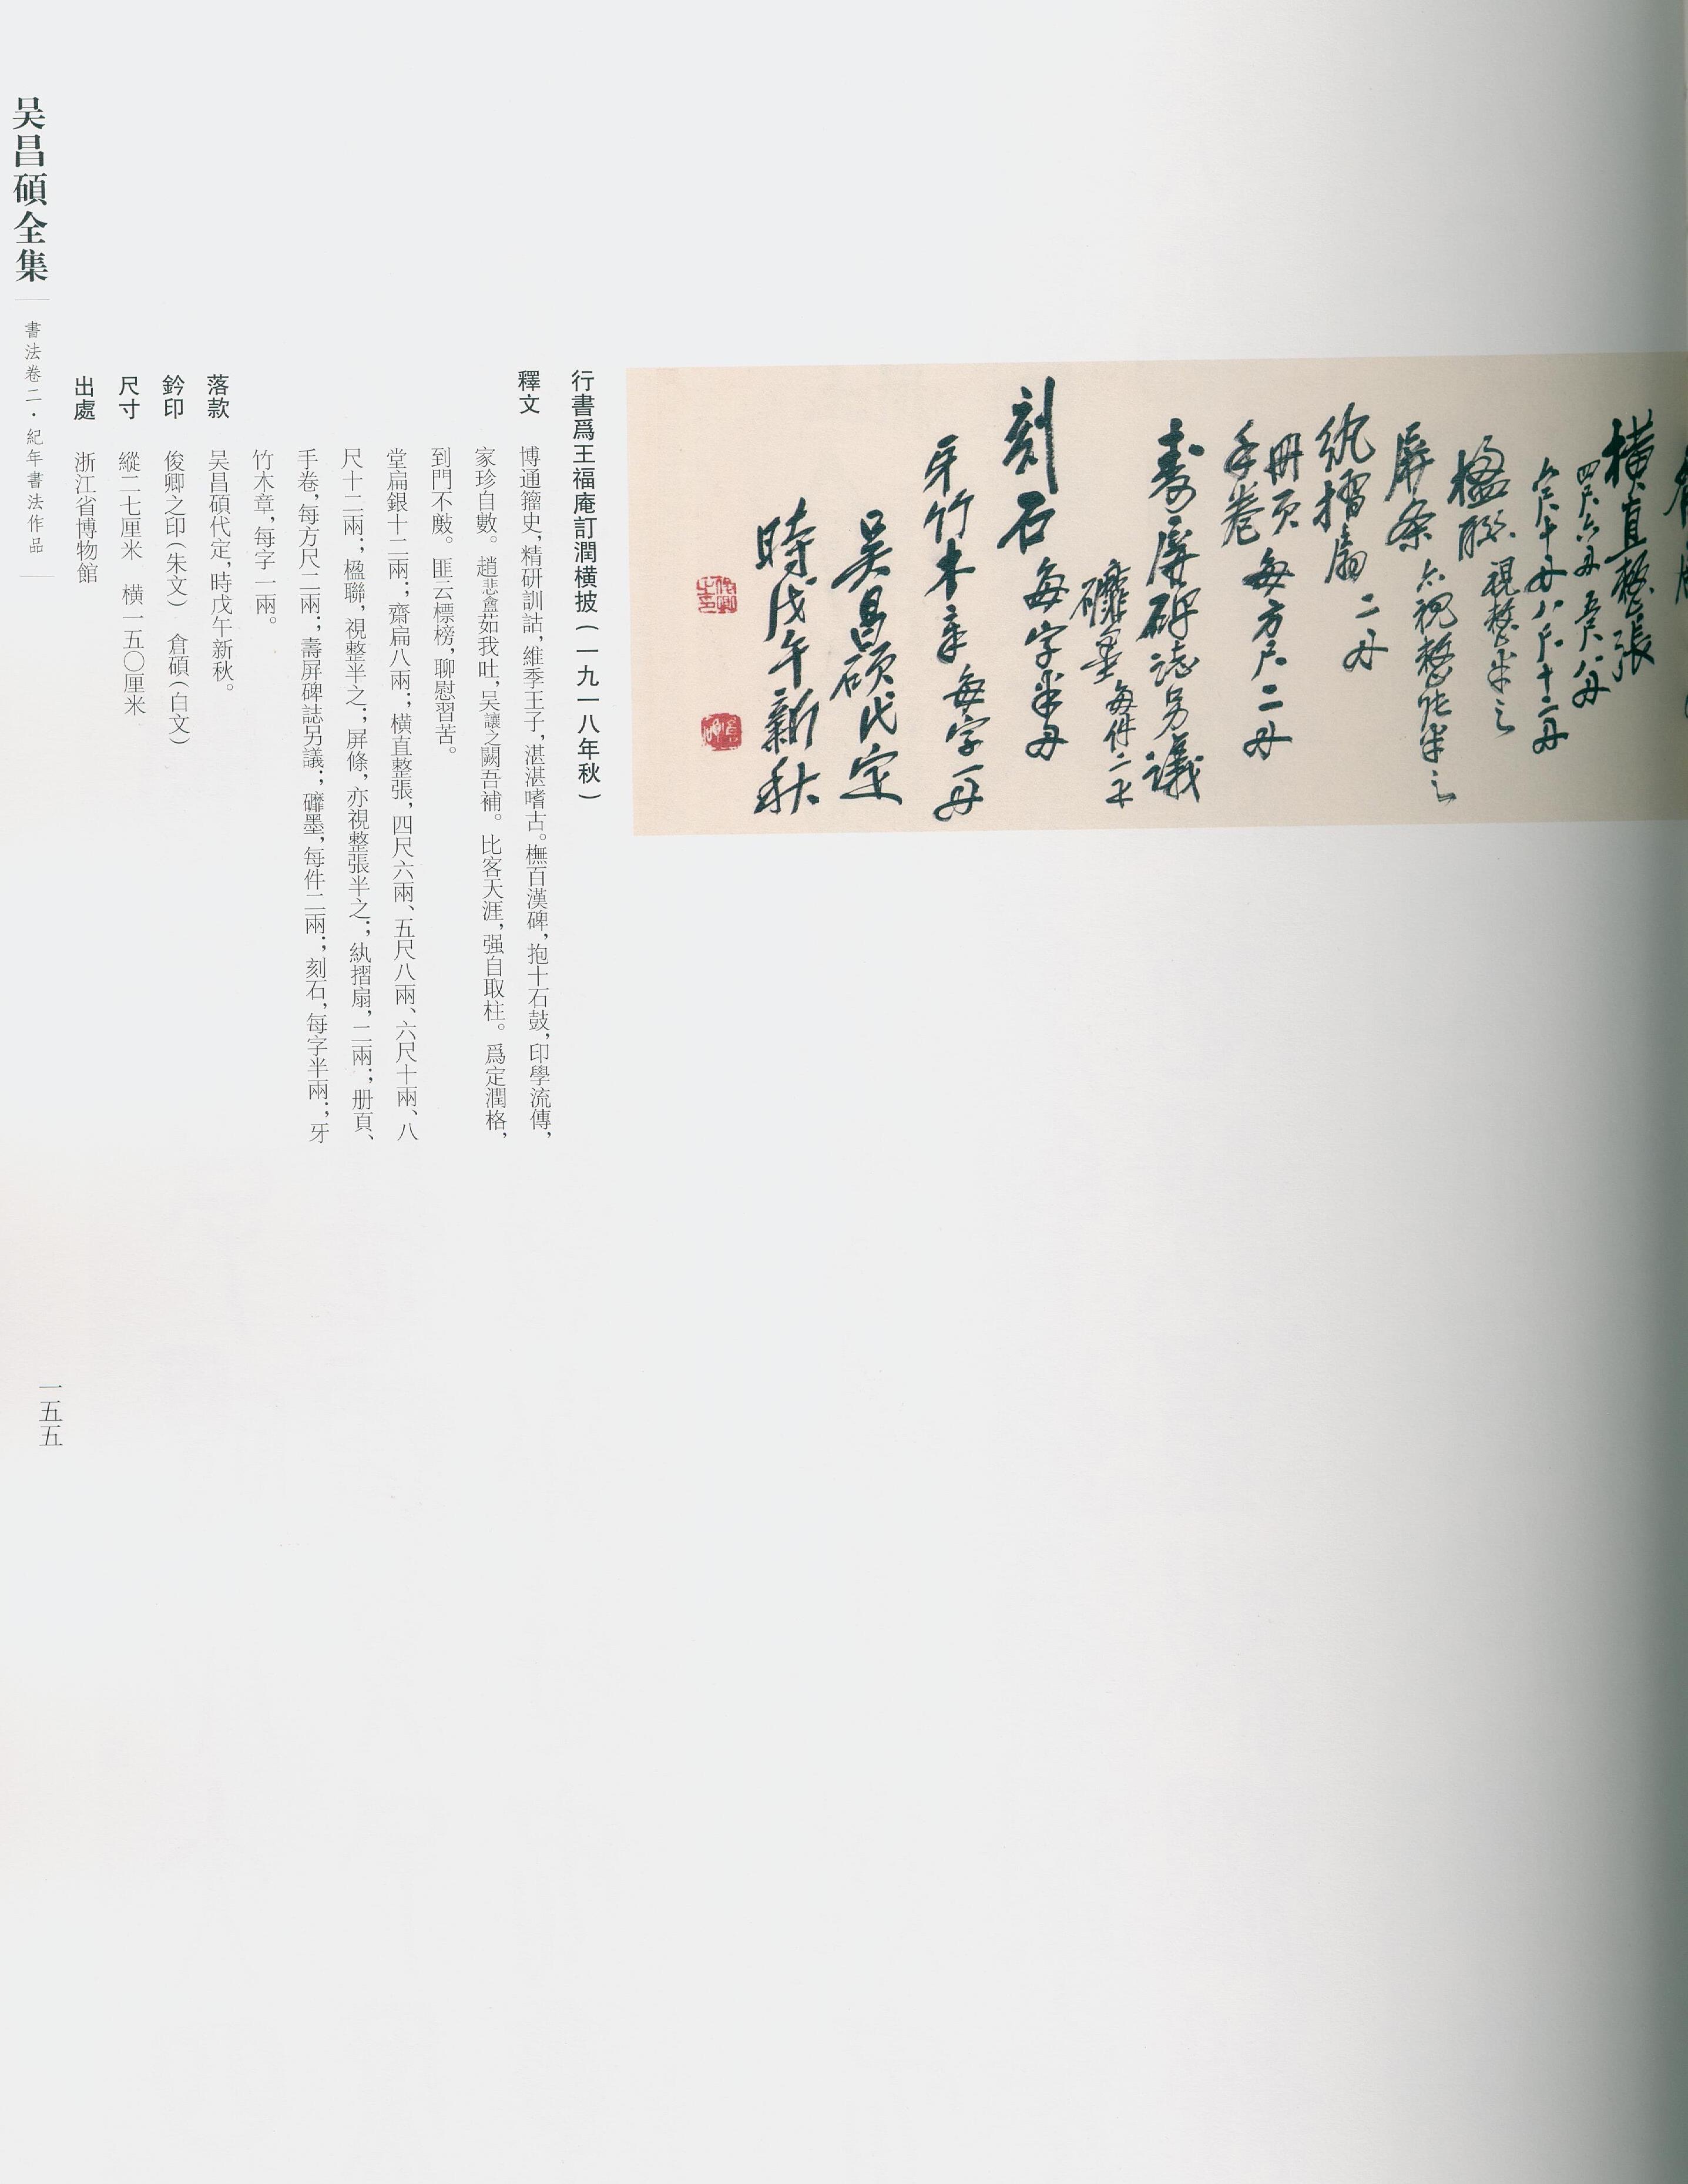 橫直整張
四尺六兩 五尺八兩
六尺十兩 八尺十二兩
楹聯 視整半之
屏条 亦視整張半之
紈摺扇 二兩
冊頁
手卷 每方尺二兩
壽屏碑誌另議
礳墨 每件二兩
刻石 每字半兩
牙竹木章 每字一兩
吴昌碩代定
時戊午新秋
俊卿之印
倉碩
行書爲王福庵訂潤橫披(一九一八年秋)
釋文 博通籀史,精研訓詁,維季王子,湛湛嗜古。橅百漢碑,抱十石鼓,印學流傳,
家珍自數。趙悲盦茹我吐,吴讓之闕吾補。比客天涯,强自取柱。爲定潤格,
到門不瞂。匪云標榜,聊慰習苦。
堂扁銀十二兩;齋扁八兩;橫直整張,四尺六兩、五尺八兩、六尺十兩、八
尺十二兩;楹聯,視整半之;屏條,亦視整張半之;紈摺扇,二兩;册頁、
手卷,每方尺二兩;壽屏碑誌另議;礳墨,每件二兩;刻石,每字半兩;牙
竹木章,每字一兩。
落款 吴昌碩代定,時戊午新秋。
鈐印 俊卿之印(朱文) 倉碩(白文)
尺寸 縱二七厘米 橫一五〇厘米
出處 浙江省博物館
吴昌碩全集
書法卷二·紀年書法作品
一五五